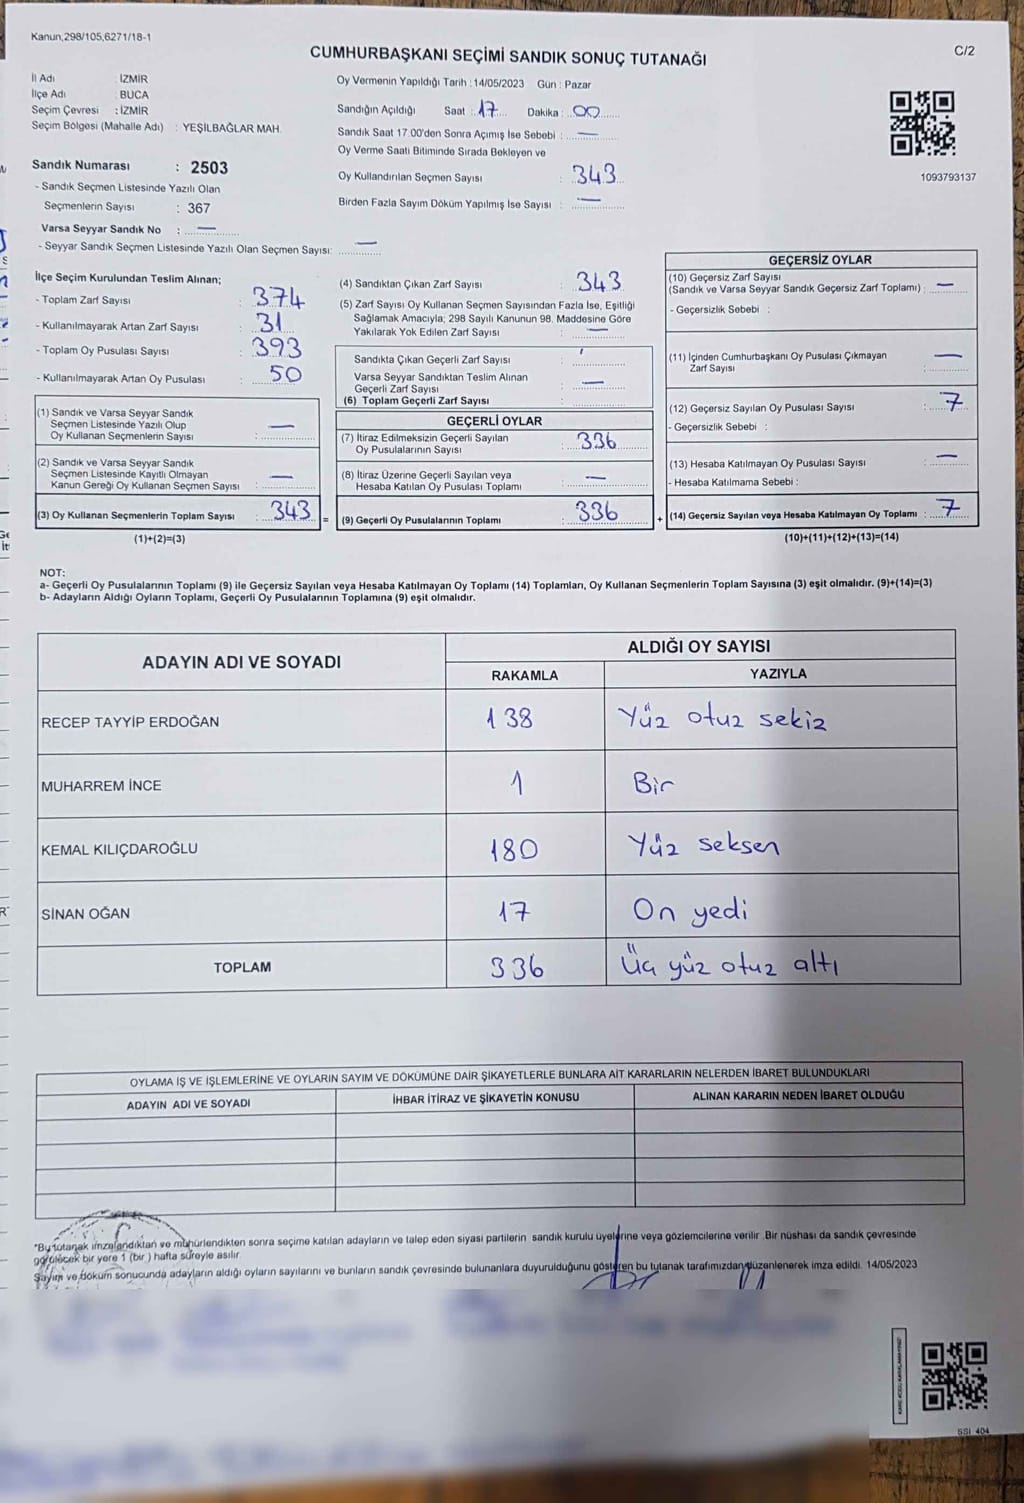 Kanun,298/105,6271/18-1
C/2
CUMHURBAŞKANI SEÇİMİ SANDIK SONUÇ TUTANAĞI
İl Adı : İZMİR
İlçe Adı : BUCA
Seçim Çevresi : İZMİR
Seçim Bölgesi (Mahalle Adı) : YEŞİLBAĞLAR MAH.
Sandık Numarası : 2503
- Sandık Seçmen Listesinde Yazılı Olan
Seçmenlerin Sayısı : 367
Varsa Seyyar Sandık No : —
- Seyyar Sandık Seçmen Listesinde Yazılı Olan Seçmen Sayısı: —
Oy Vermenin Yapıldığı Tarih : 14/05/2023 Gün : Pazar
Sandığın Açıldığı Saat : 17 Dakika : 00
Sandık Saat 17.00'den Sonra Açımış İse Sebebi : —
Oy Verme Saati Bitiminde Sırada Bekleyen ve
Oy Kullandırılan Seçmen Sayısı : 343
Birden Fazla Sayım Döküm Yapılmış İse Sayısı : —
1093793137
İlçe Seçim Kurulundan Teslim Alınan;
- Toplam Zarf Sayısı : 374
- Kullanılmayarak Artan Zarf Sayısı : 31
- Toplam Oy Pusulası Sayısı : 393
- Kullanılmayarak Artan Oy Pusulası : 50
(1) Sandık ve Varsa Seyyar Sandık
Seçmen Listesinde Yazılı Olup
Oy Kullanan Seçmenlerin Sayısı : —
(2) Sandık ve Varsa Seyyar Sandık
Seçmen Listesinde Kayıtlı Olmayan
Kanun Gereği Oy Kullanan Seçmen Sayısı : —
(3) Oy Kullanan Seçmenlerin Toplam Sayısı : 343 =
(1)+(2)=(3)
(4) Sandıktan Çıkan Zarf Sayısı : 343
(5) Zarf Sayısı Oy Kullanan Seçmen Sayısından Fazla İse, Eşitliği
Sağlamak Amacıyla; 298 Sayılı Kanunun 98. Maddesine Göre
Yakılarak Yok Edilen Zarf Sayısı : —
Sandıkta Çıkan Geçerli Zarf Sayısı :
Varsa Seyyar Sandıktan Teslim Alınan
Geçerli Zarf Sayısı : —
(6) Toplam Geçerli Zarf Sayısı :
GEÇERLİ OYLAR
(7) İtiraz Edilmeksizin Geçerli Sayılan
Oy Pusulalarının Sayısı : 336
(8) İtiraz Üzerine Geçerli Sayılan veya
Hesaba Katılan Oy Pusulası Toplamı : —
(9) Geçerli Oy Pusulalarının Toplamı : 336 +
GEÇERSİZ OYLAR
(10) Geçersiz Zarf Sayısı
(Sandık ve Varsa Seyyar Sandık Geçersiz Zarf Toplamı) : —
- Geçersizlik Sebebi :
(11) İçinden Cumhurbaşkanı Oy Pusulası Çıkmayan
Zarf Sayısı : —
(12) Geçersiz Sayılan Oy Pusulası Sayısı : 7
- Geçersizlik Sebebi :
(13) Hesaba Katılmayan Oy Pusulası Sayısı : —
- Hesaba Katılmama Sebebi :
(14) Geçersiz Sayılan veya Hesaba Katılmayan Oy Toplamı : 7
(10)+(11)+(12)+(13)=(14)
NOT:
a- Geçerli Oy Pusulalarının Toplamı (9) ile Geçersiz Sayılan veya Hesaba Katılmayan Oy Toplamı (14) Toplamları, Oy Kullanan Seçmenlerin Toplam Sayısına (3) eşit olmalıdır. (9)+(14)=(3)
b- Adayların Aldığı Oyların Toplamı, Geçerli Oy Pusulalarının Toplamına (9) eşit olmalıdır.
ADAYIN ADI VE SOYADI
ALDIĞI OY SAYISI
RAKAMLA YAZIYLA
RECEP TAYYİP ERDOĞAN 138 Yüz otuz sekiz
MUHARREM İNCE 1 Bir
KEMAL KILIÇDAROĞLU 180 Yüz seksen
SİNAN OĞAN 17 On yedi
TOPLAM 336 Üç yüz otuz altı
OYLAMA İŞ VE İŞLEMLERİNE VE OYLARIN SAYIM VE DÖKÜMÜNE DAİR ŞİKAYETLERLE BUNLARA AİT KARARLARIN NELERDEN İBARET BULUNDUKLARI
ADAYIN ADI VE SOYADI İHBAR İTİRAZ VE ŞİKAYETİN KONUSU ALINAN KARARIN NEDEN İBARET OLDUĞU
*Bu tutanak imzalandıktan ve mühürlendikten sonra seçime katılan adayların ve talep eden siyasi partilerin sandık kurulu üyelerine veya gözlemcilerine verilir. Bir nüshası da sandık çevresinde
görülecek bir yere 1 (bir ) hafta süreyle asılır.
Sayım ve döküm sonucunda adayların aldığı oyların sayılarını ve bunların sandık çevresinde bulunanlara duyurulduğunu gösteren bu tutanak tarafımızdan düzenlenerek imza edildi. 14/05/2023
SSI 404